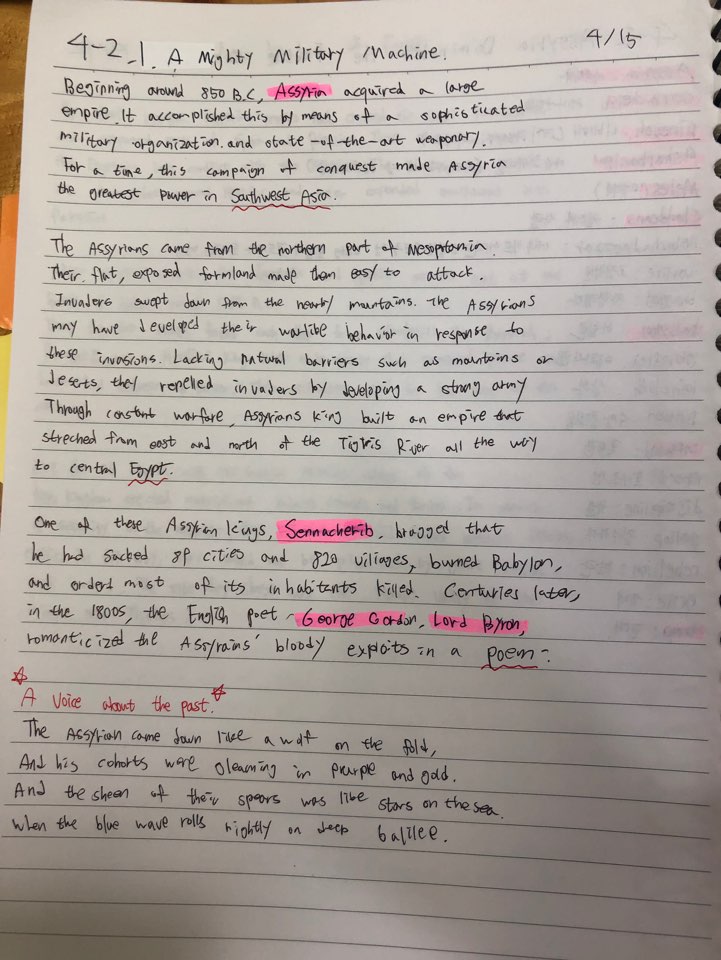 4-2-1. A Mighty Military Machine. 4/15
Beginning around 850 B.C, Assyria acquired a large
empire. It accomplished this by means of a sophisticated
military organization and state-of-the-art weaponary.
For a time, this campaign of conquest made Assyria
the greatest power in Southwest Asia.
The Assyrians came from the northern part of Mesopotamia.
Their flat, exposed formland made them easy to attack.
Invaders swept down from the nearby mountains. The Assyrians
may have developed their warlike behavior in response to
these invasions. Lacking natural barriers such as mountains or
deserts, they repelled invaders by developing a strong army
Through constant warfare, Assyrians king built an empire that
streched from east and north of the Tigris River all the way
to central Egypt.
One of these Assyrian kings, Sennacherib, bragged that
he had sacked 89 cities and 820 villages, burned Babylon,
and orderd most of its inhabitants killed. Centuries later,
in the 1800s, the English poet - George Gordon, Lord Byron,
romanticized the Assyrains' bloody exploits in a poem:
A Voice about the past.
The Assyrian came down like a wolf on the fold,
And his cohorts were gleaming in purple and gold.
And the sheen of their spears was like stars on the sea.
When the blue wave rolls nightly on deep Galilee.